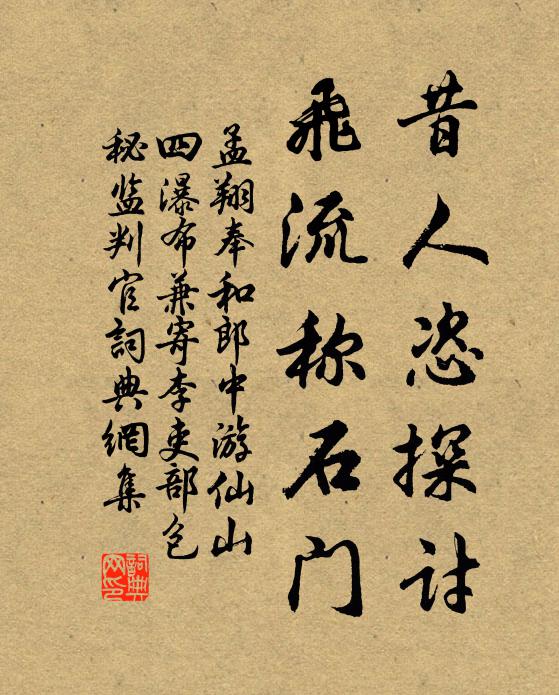 昔人恣探討
飛流称石门
孟翔奉和郎中游仙山
四瀑布兼寄李吏部包
秘监判官詞典網集
詞典网印